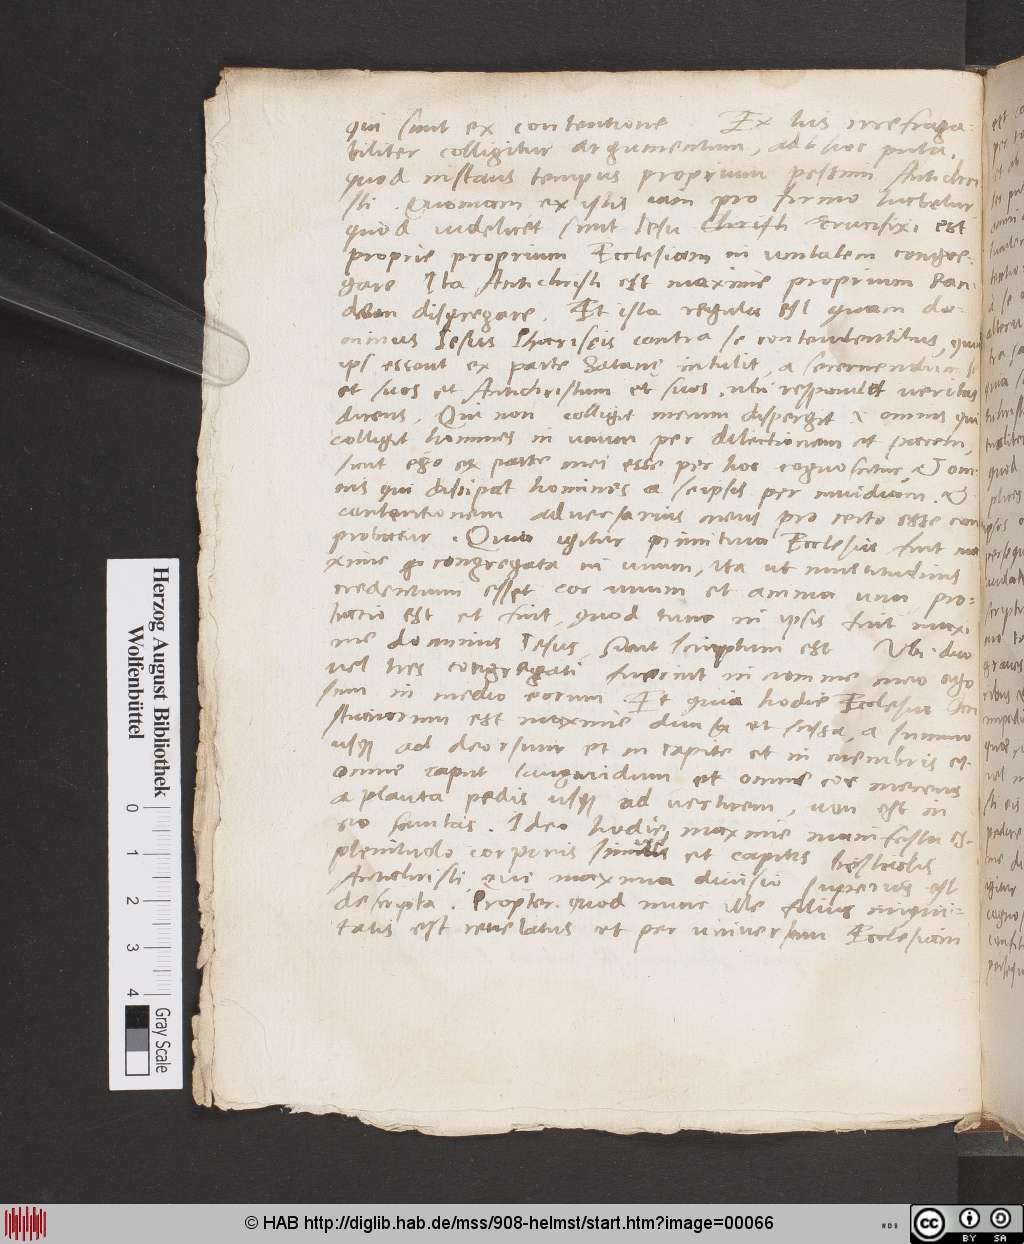 qui sunt ex contentione Ex his irrefraga-
biliter colligitur argumentum, adhuc puta,
quod instans tempus proprium pessimi Antichri
sti . Quoniam ex istis iam pro firmo habetur
quod videlicet sicut Iesu Christi crucifixi est
proprie proprium Ecclesiam in unitatem congre-
gare Ita Antichristi est maxime proprium ean-
dem disgregare . Et ista regula est quam do-
minus Iesus Phariseis contra se contendentibus, quia
ipsi essent ex parte Satane intulit, a secernendum se
et suos et Antichristum et suos, ubi respondet veritas
dicens, Qui non colligit mecum dispergit & omnis qui
colligit homines in unum per dilectionem et pacem,
sicut ego ex parte mei esse per hoc cognoscitur, & Iom
nis qui dissipat homines a seipsis per invidiam &
contentionem adversarius meus pro certo esse com
probatur . Quia igitur primitiva Ecclesia fuit ma
xime congregata in unum, ita ut multitudinis
credentium esset cor unum et anima una, pro-
batio est et fuit, quod tunc in ipsis fuit maxi
me dominus Iesus, sicut scriptum est Ubi duo
vel tres congregati fuerint in nomine meo ego
sum in medio eorum . Et quia hodie Ecclesia Chri
stianorum est maxime divisa et scissa, a summo
usq ad deorsum et in capite et in membris et
omne caput languidum et omne cor merens
a planta pedis usq ad verticem, non est in
eo sanitas . Ideo hodie maxime manifesta est
plenitudo corporis et capitis bestialis
Antichristi, qui maxima divisio superius est
descripta . Propter quod nunc ille filius iniqui-
tatis est revelatus et per universam Ecclesiam
Herzog August Bibliothek
Wolfenbüttel
0 1 2 3 4 Gray Scale
© HAB http://diglib.hab.de/mss/908-helmst/start.htm?image=00066
WDB
CC BY SA